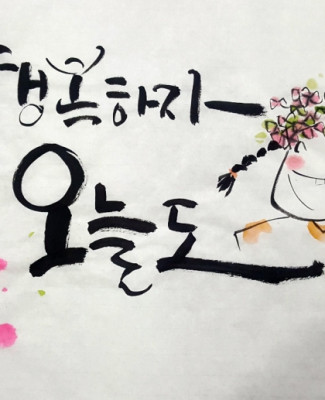 행복하자
오늘도